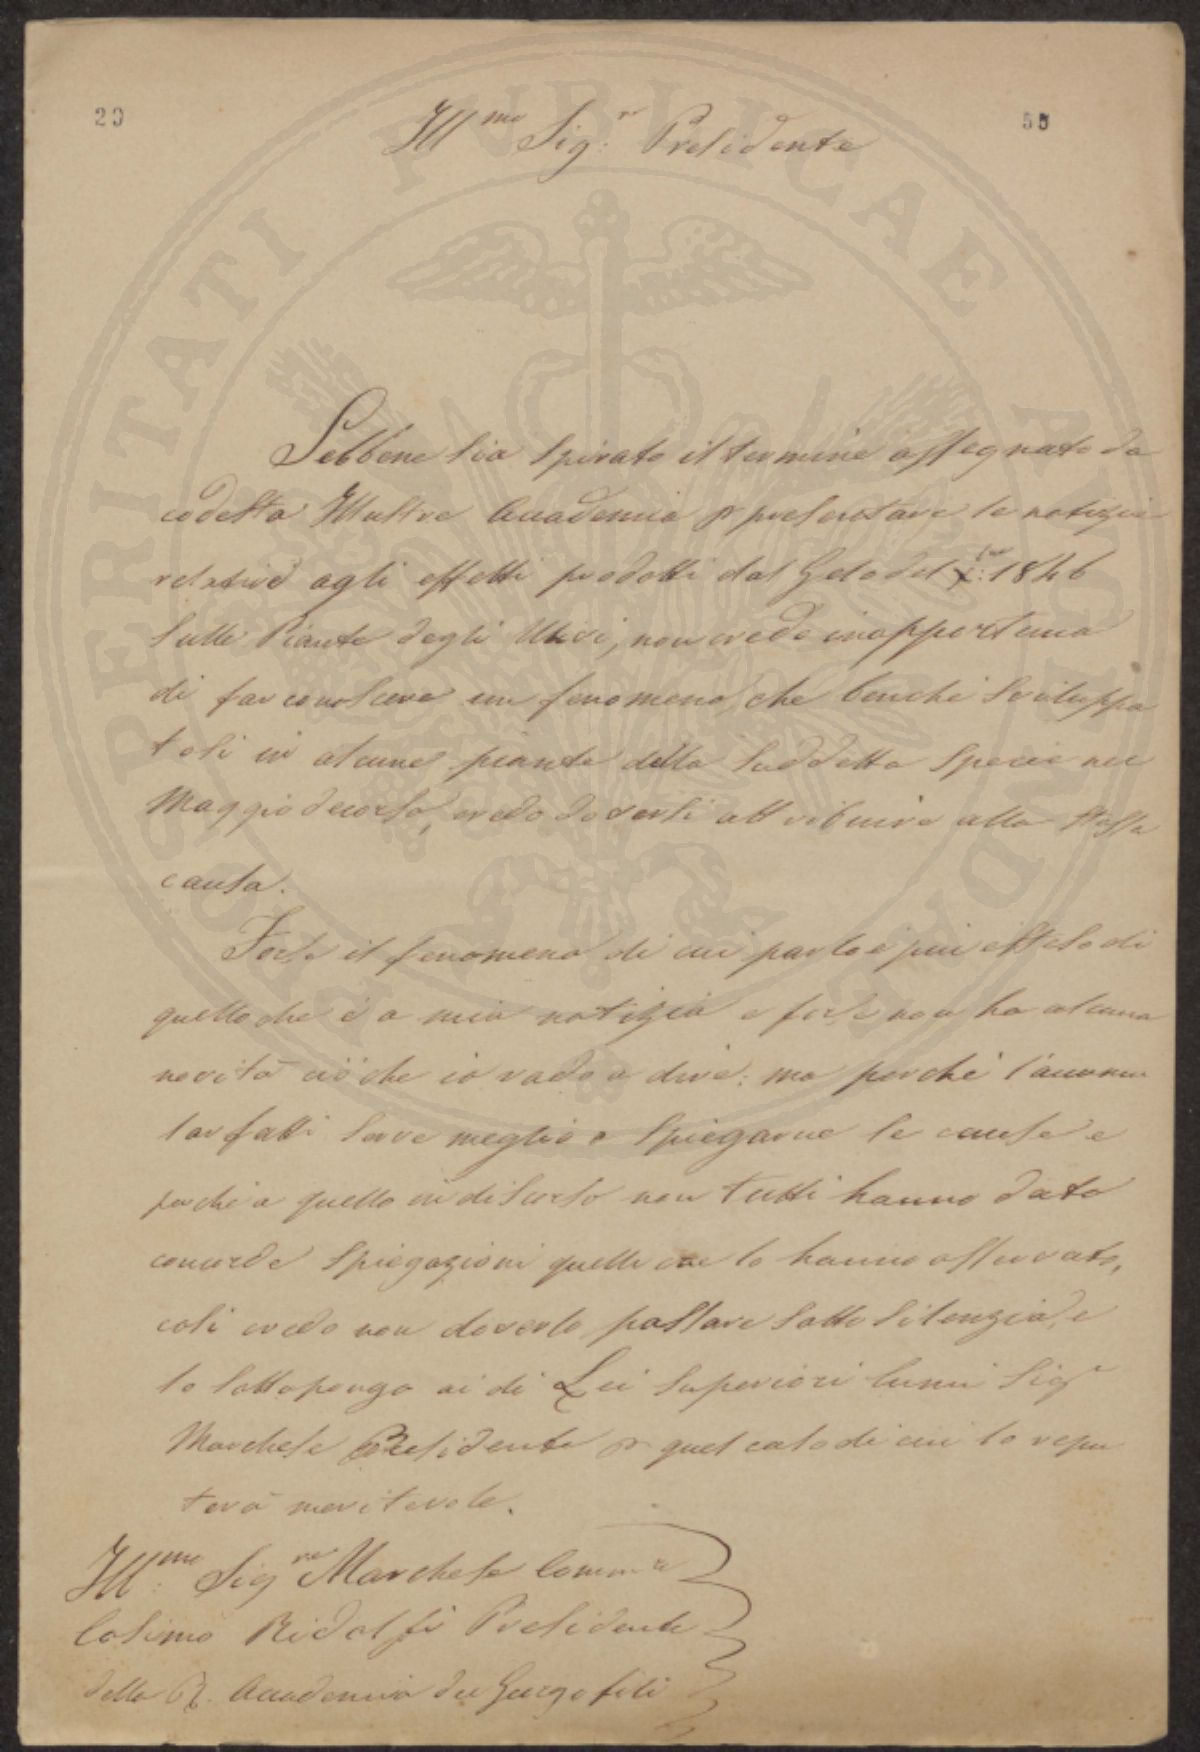 20
55
Ill.mo Sig.re Presidente
Sebbene sia spirato il termine assegnato da
codesta Illustre Accademia p presentare le notizie
relative agli effetti prodotti dal Gelo del 1846
sulle Piante degli Ulivi, non credo inopportuno
di far conoscere un fenomeno, che benchè sviluppa
tosi in alcune piante della suddetta specie nel
Maggio decorso, credo doversi attribuire alla stessa
causa.
Forse il fenomeno di cui parlo è più esteso di
quello che è a mia notizia e forse non ha alcuna
novità ciò che io vado a dire: ma perchè l'accumu
lar fatti serve meglio a spiegarne le cause e
perchè a quello in discorso non tutti hanno dato
concorde spiegazioni quelli che lo hanno osservato,
così credo non doverlo passare sotto silenzio, e
lo sottopongo ai di Lei superiori lumi Sig.r
Marchese Presidente p quel caso di cui lo repu
terà meritevole.
Ill.mo Sig.re Marchese Comm.re
Cosimo Ridolfi Presidente
della R. Accademia dei Georgofili
PROSPERITATI PUBLICAE AUGENDAE